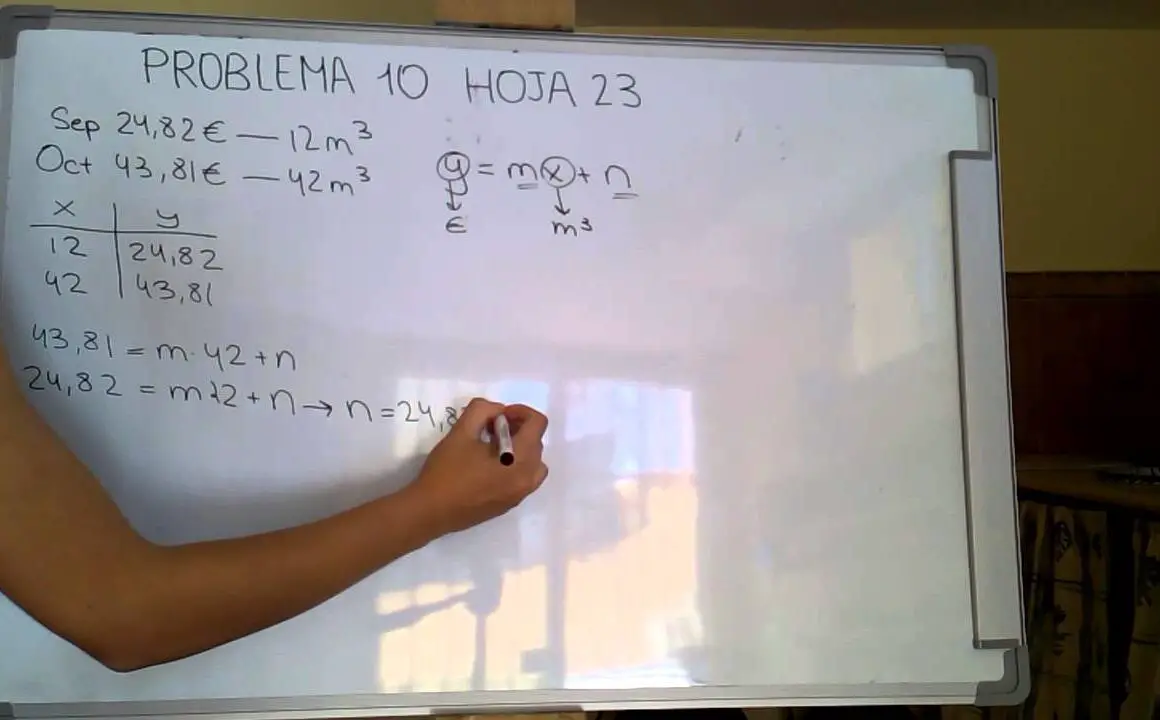 PROBLEMA 10 HOJA 23
Sep 24,82€ — 12m³
Oct 43,81€ — 42m³
x y
12 24,82
42 43,81
y = mx + n
€ m³
43,81 = m·42 + n
24,82 = m·12 + n → n = 24,8